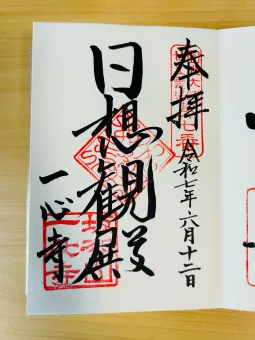 奉拝
令和七年六月十二日
日想観殿
一心寺
七番